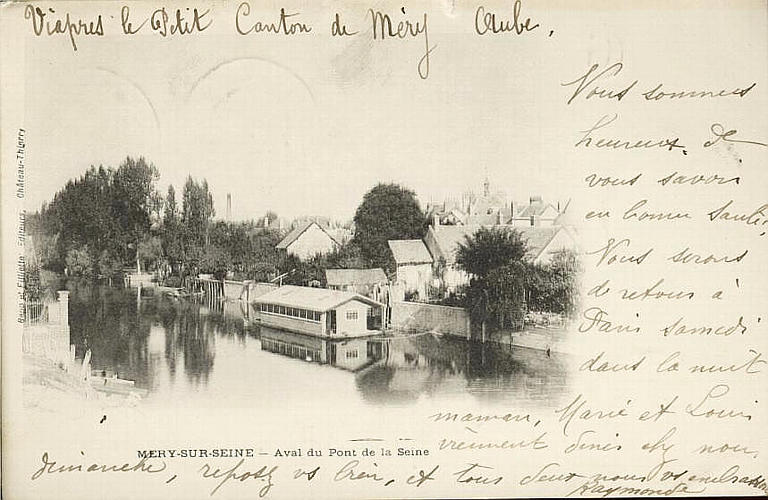 Viapres le Petit Canton de Méry Aube.
Nous sommes
heureux de
vous savoir
en bonne santé.
Nous serons
de retour à
Paris samedi
dans la nuit
maman, Marie et Louis
viennent diner chez nous
dimanche, reposez vs bien, et tous deux nous vs embrassons
Raymonde
MERY-SUR-SEINE — Aval du Pont de la Seine
Editeurs, Château-Thierry